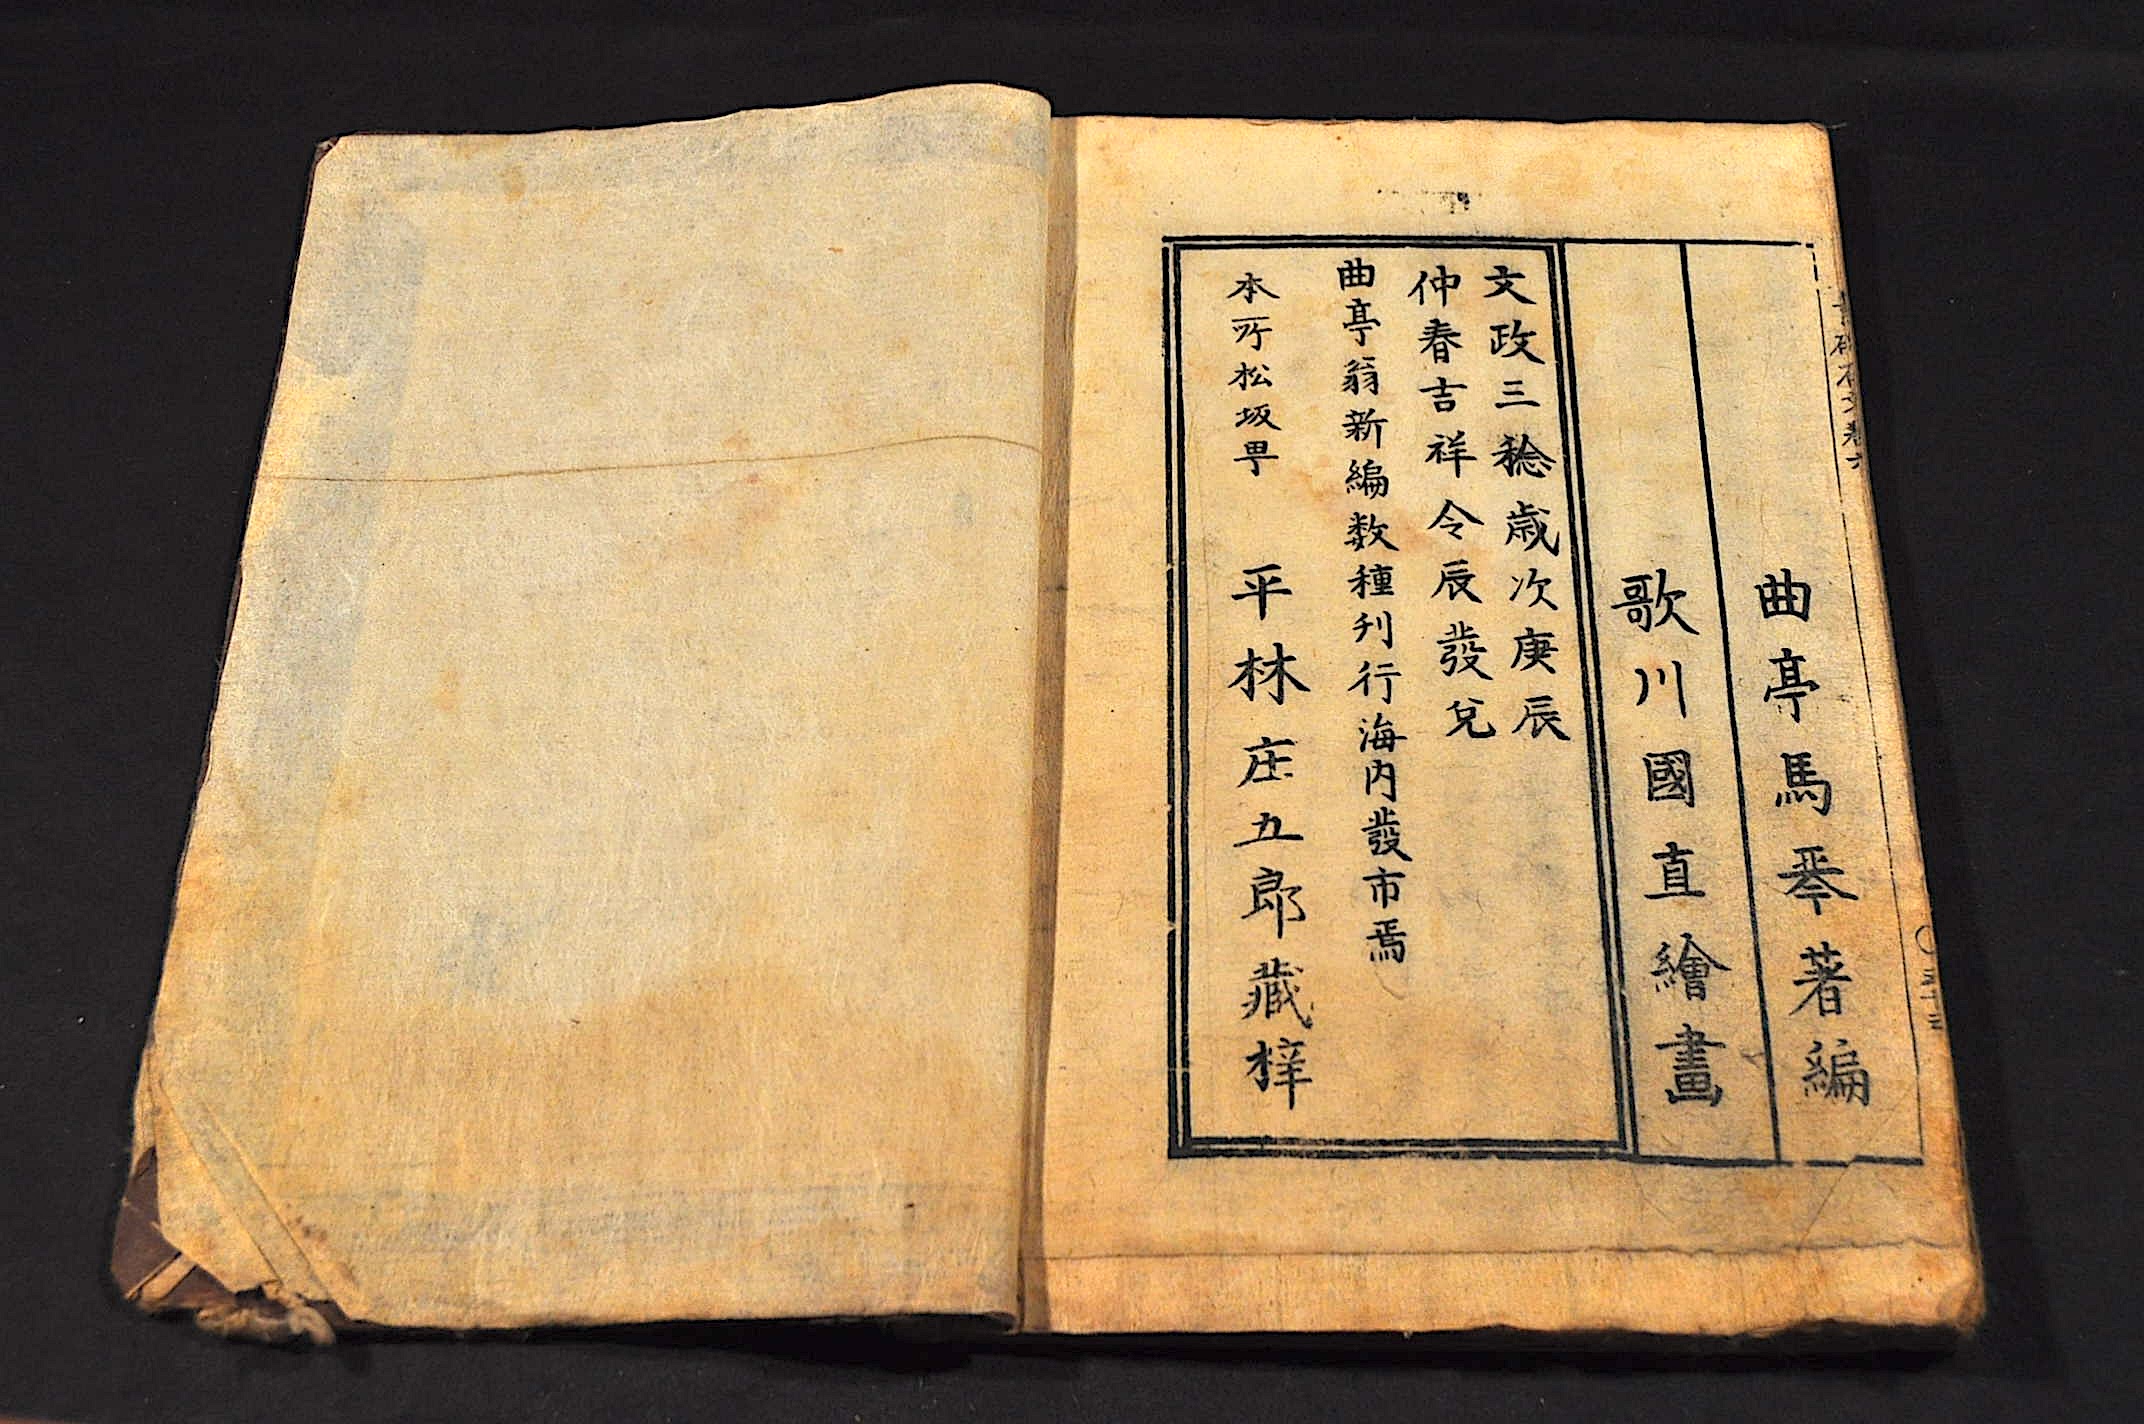 曲亭馬琴著編
歌川國直繪畫
文政三稔歳次庚辰
仲春吉祥令辰發兌
曲亭翁新編数種刋行海内發市焉
本所松坂甼 平林庄五郎藏梓